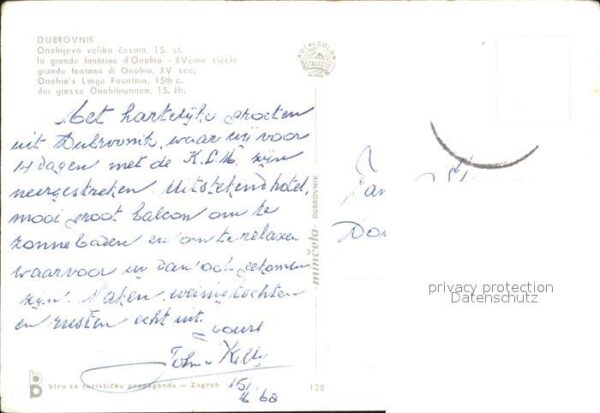 DUBROVNIK
Onofrijeva velika česma, 15. st.
la grande fontaine d'Onofrio - XVeme siecle
grande fontana di Onofrio, XV sec.
Onofrio's Large Fountain, 15th c.
der grosse Onofribrunnen, 15. Jh.
ROTALCOLOR
Met hartelijke groeten
uit Dubrovnik, waar wij voor
4 dagen met de K.L.M. zijn
neergestreken. Uitstekend hotel,
mooi groot balcon om te
zonnebaden en om te relaxen
waarvoor wij dan ook gekomen
zijn. Maken weinig tochten
en rusten echt uit.
Kelly
minčeta DUBROVNIK
biro za turističku propagandu — Zagreb
128
privacy protection
Datenschutz